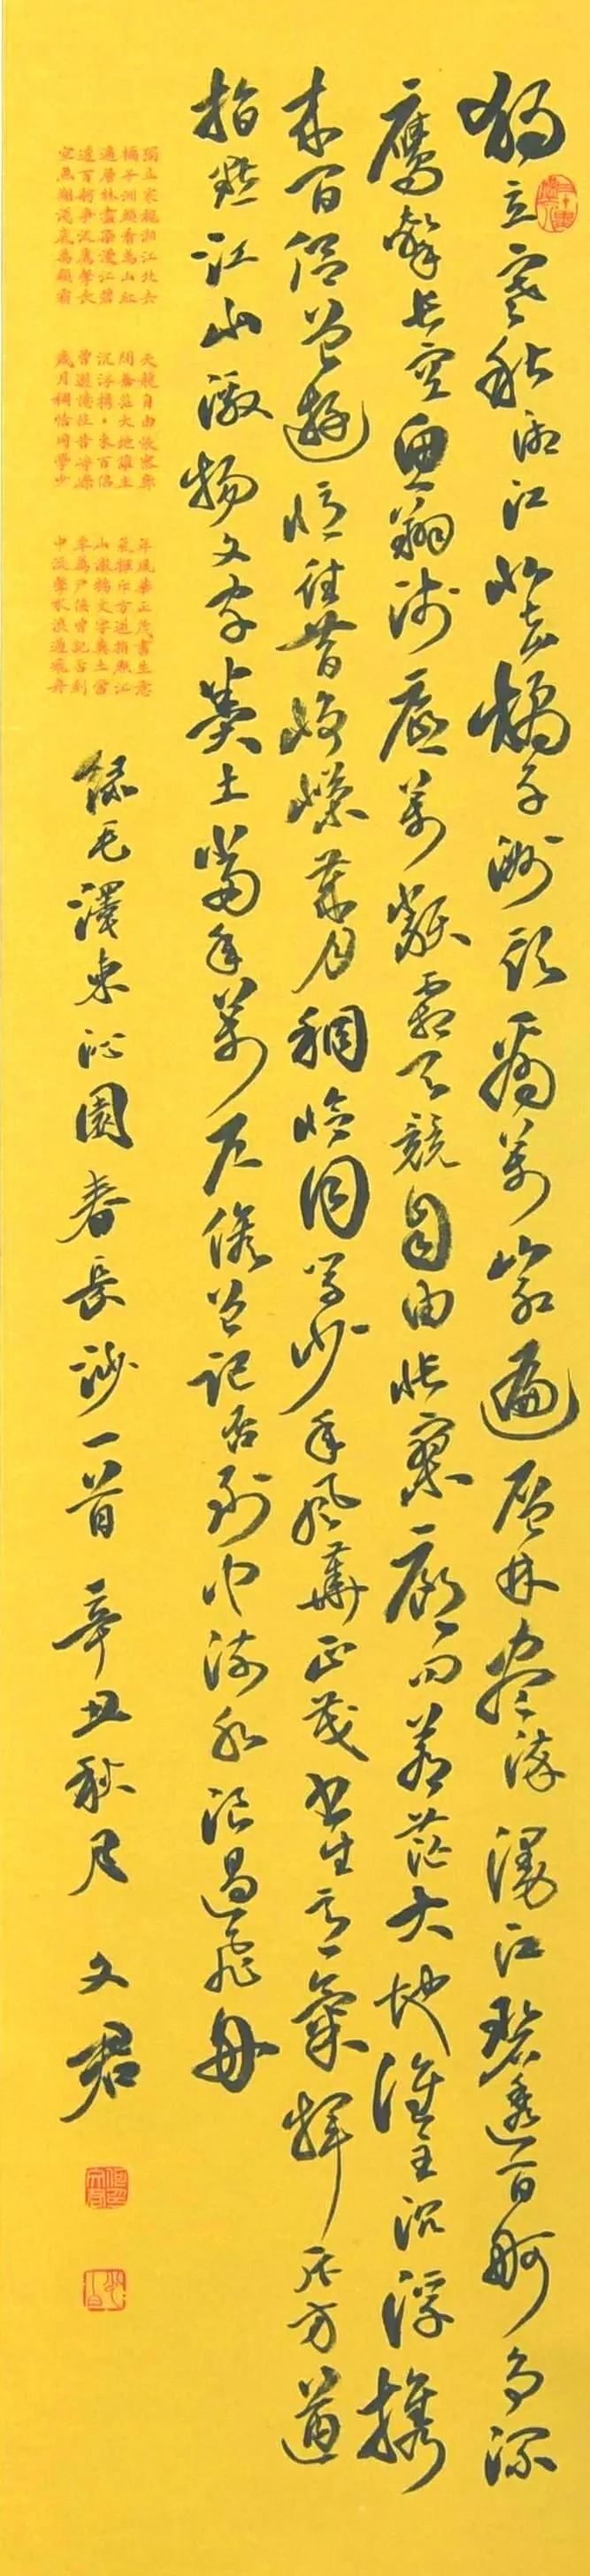 獨立寒秋湘江北去橘子洲頭看萬山紅遍層林盡染漫江碧透百舸爭流
鷹擊長空魚翔淺底萬類霜天競自由悵寥廓問蒼茫大地誰主沉浮攜
來百侶曾遊憶往昔崢嶸歲月稠恰同學少年風華正茂書生意氣揮斥方遒
指點江山激揚文字糞土當年萬戶侯曾記否到中流水浪遏飛舟
獨立寒秋湘江北去
橘子洲頭看萬山紅
遍層林盡染漫江碧
透百舸爭流鷹擊長
空魚翔淺底萬類霜
天競自由悵寥廓
問蒼茫大地誰主
沉浮攜·來百侶
曾遊憶往昔崢嶸
歲月稠恰同學少
年風華正茂書生意
氣揮斥方遒指點江
山激揚文字糞土當
年萬戶侯曾記否到
中流擊水浪遏飛舟
錄毛澤東沁園春長沙一首 辛丑秋月 文君